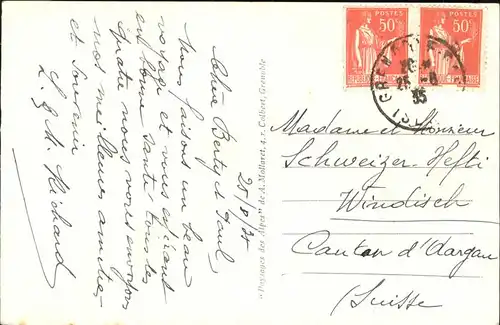 25/8/35
Chers Berty et Paul,
Nous faisons un beau
voyage et vous espérant
en bonne santé tous les
quatre nous vous envoyons
nos meilleures amitiés
et souvenir
L. & M. Richard
"Paysages des Alpes" de A. Mollaret, 4, r. Colbert, Grenoble
POSTES
50c
POSTES
50c
GRENOBLE
25 -8
35
ISÈRE
Madame et Monsieur
Schweizer-Hefti
Windisch
Canton d'Aargau
(Suisse)